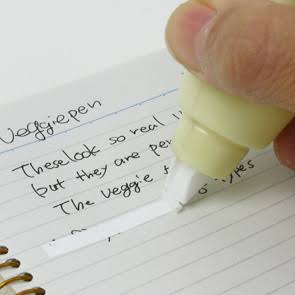 Veggiepen
These look so real li
but they are pen
The veggie t o types